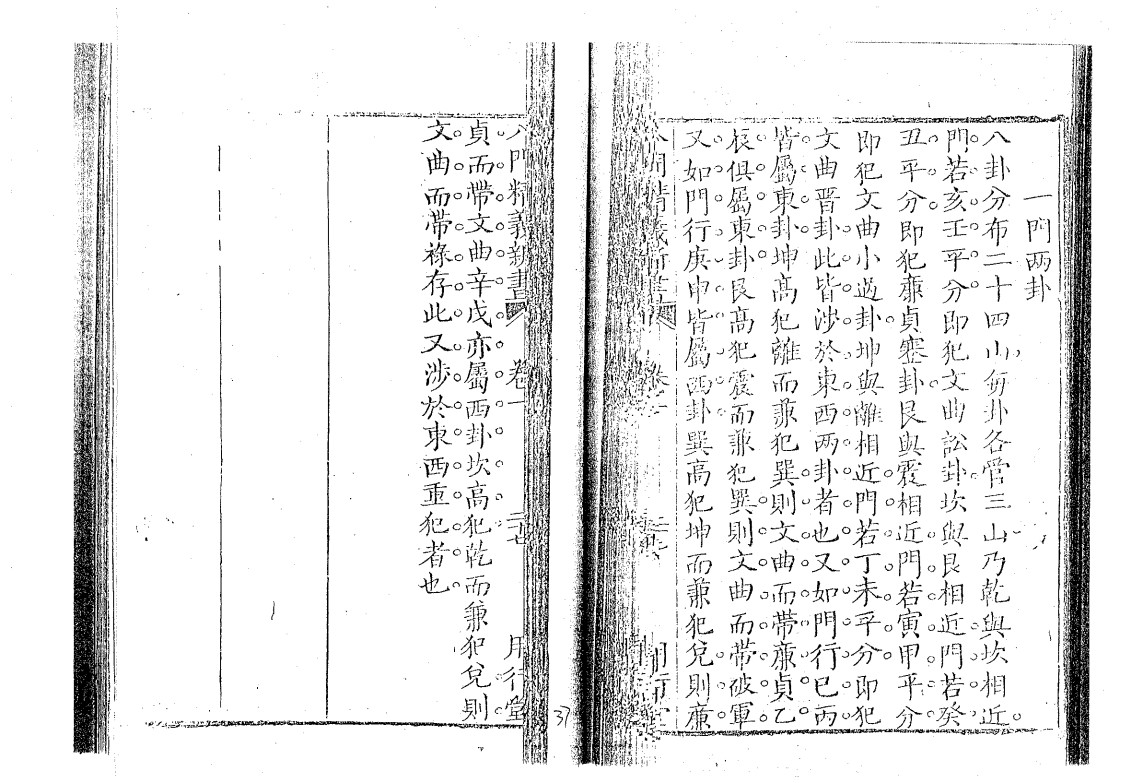 一門两卦
八卦分布二十四山每卦各管三山乃乾與坎相近
門若亥壬平分即犯文曲訟卦坎與艮相近門若癸
丑平分即犯廉貞蹇卦艮與震相近門若寅甲平分
即犯文曲小過卦坤與離相近門若丁未平分即犯
文曲晋卦此皆涉於東西两卦者也又如門行巳丙
皆屬東卦坤高犯離而兼犯巽則文曲而帶廉貞乙
辰俱屬東卦艮高犯震而兼犯巽則文曲而帶破軍
又如門行庚申皆屬西卦巽高犯坤而兼犯兌則廉
八門精義新書 卷一 二七 用行堂
37
貞而帶文曲辛戌亦屬西卦坎高犯乾而兼犯兌則
文曲而帶祿存此又涉於東西重犯者也